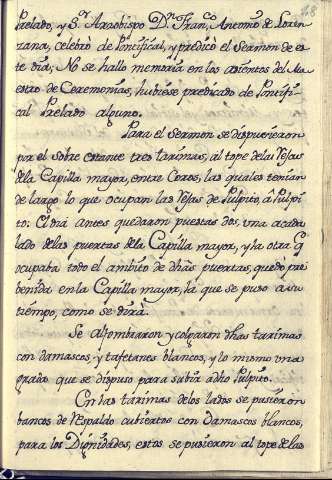 118
Prelado, y S.r Arzobispo D.n Fran.co Antonio de Loren-
zana, celebró de Pontifical, y predicó el Sermon de es-
te dia; No se halló memoria en los asientos del Ma-
estro de Ceremonias, hubiese predicado de Pontifi-
cal Prelado alguno.
Para el Sermon se dispusieron
por el sobre estante tres tarimas, al tope de las Rejas
de la Capilla mayor, entre Coros, las quales tenian
de largo lo que ocupan las Rejas de Pulpito, â Pulpi-
to: El dia antes quedaron puestas dos, una a cada
lado de las puertas de la Capilla mayor, y la otra q
ocupaba todo el ambito de dhãs puertas, quedó pre-
benida en la Capilla mayor, la que se puso a su
tiempo, como se dirá.
Se alfombraron y colgaron dhas tarimas
con damascos y tafetanes blancos, y lo mismo una
grada que se dispuso para subir a dho Pulpito.
En las tarimas de los lados se pusieron
bancos de Respaldo cubiertos con Damascos blancos,
para los Dignidades, estos se pusieron al tope de las